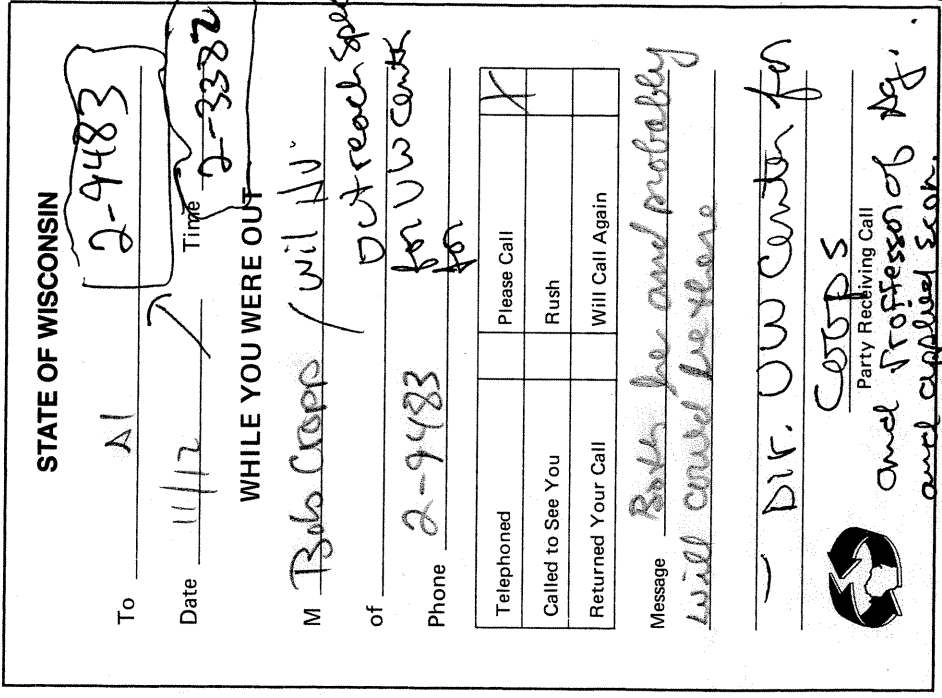 STATE OF WISCONSIN
To Al 2-9483
Date 11/12 Time 2-3382
WHILE YOU WERE OUT
M Bob Cropp / Will
of Outreach Spec
for UW Cent
for
Phone 2-9483
Telephoned Please Call X
Called to See You Rush
Returned Your Call Will Call Again
Message Both he and probably
Will could be there
— Dir. UW Center for
Coops
Party Receiving Call
and Proffessor of Ag.
and applied Econ.